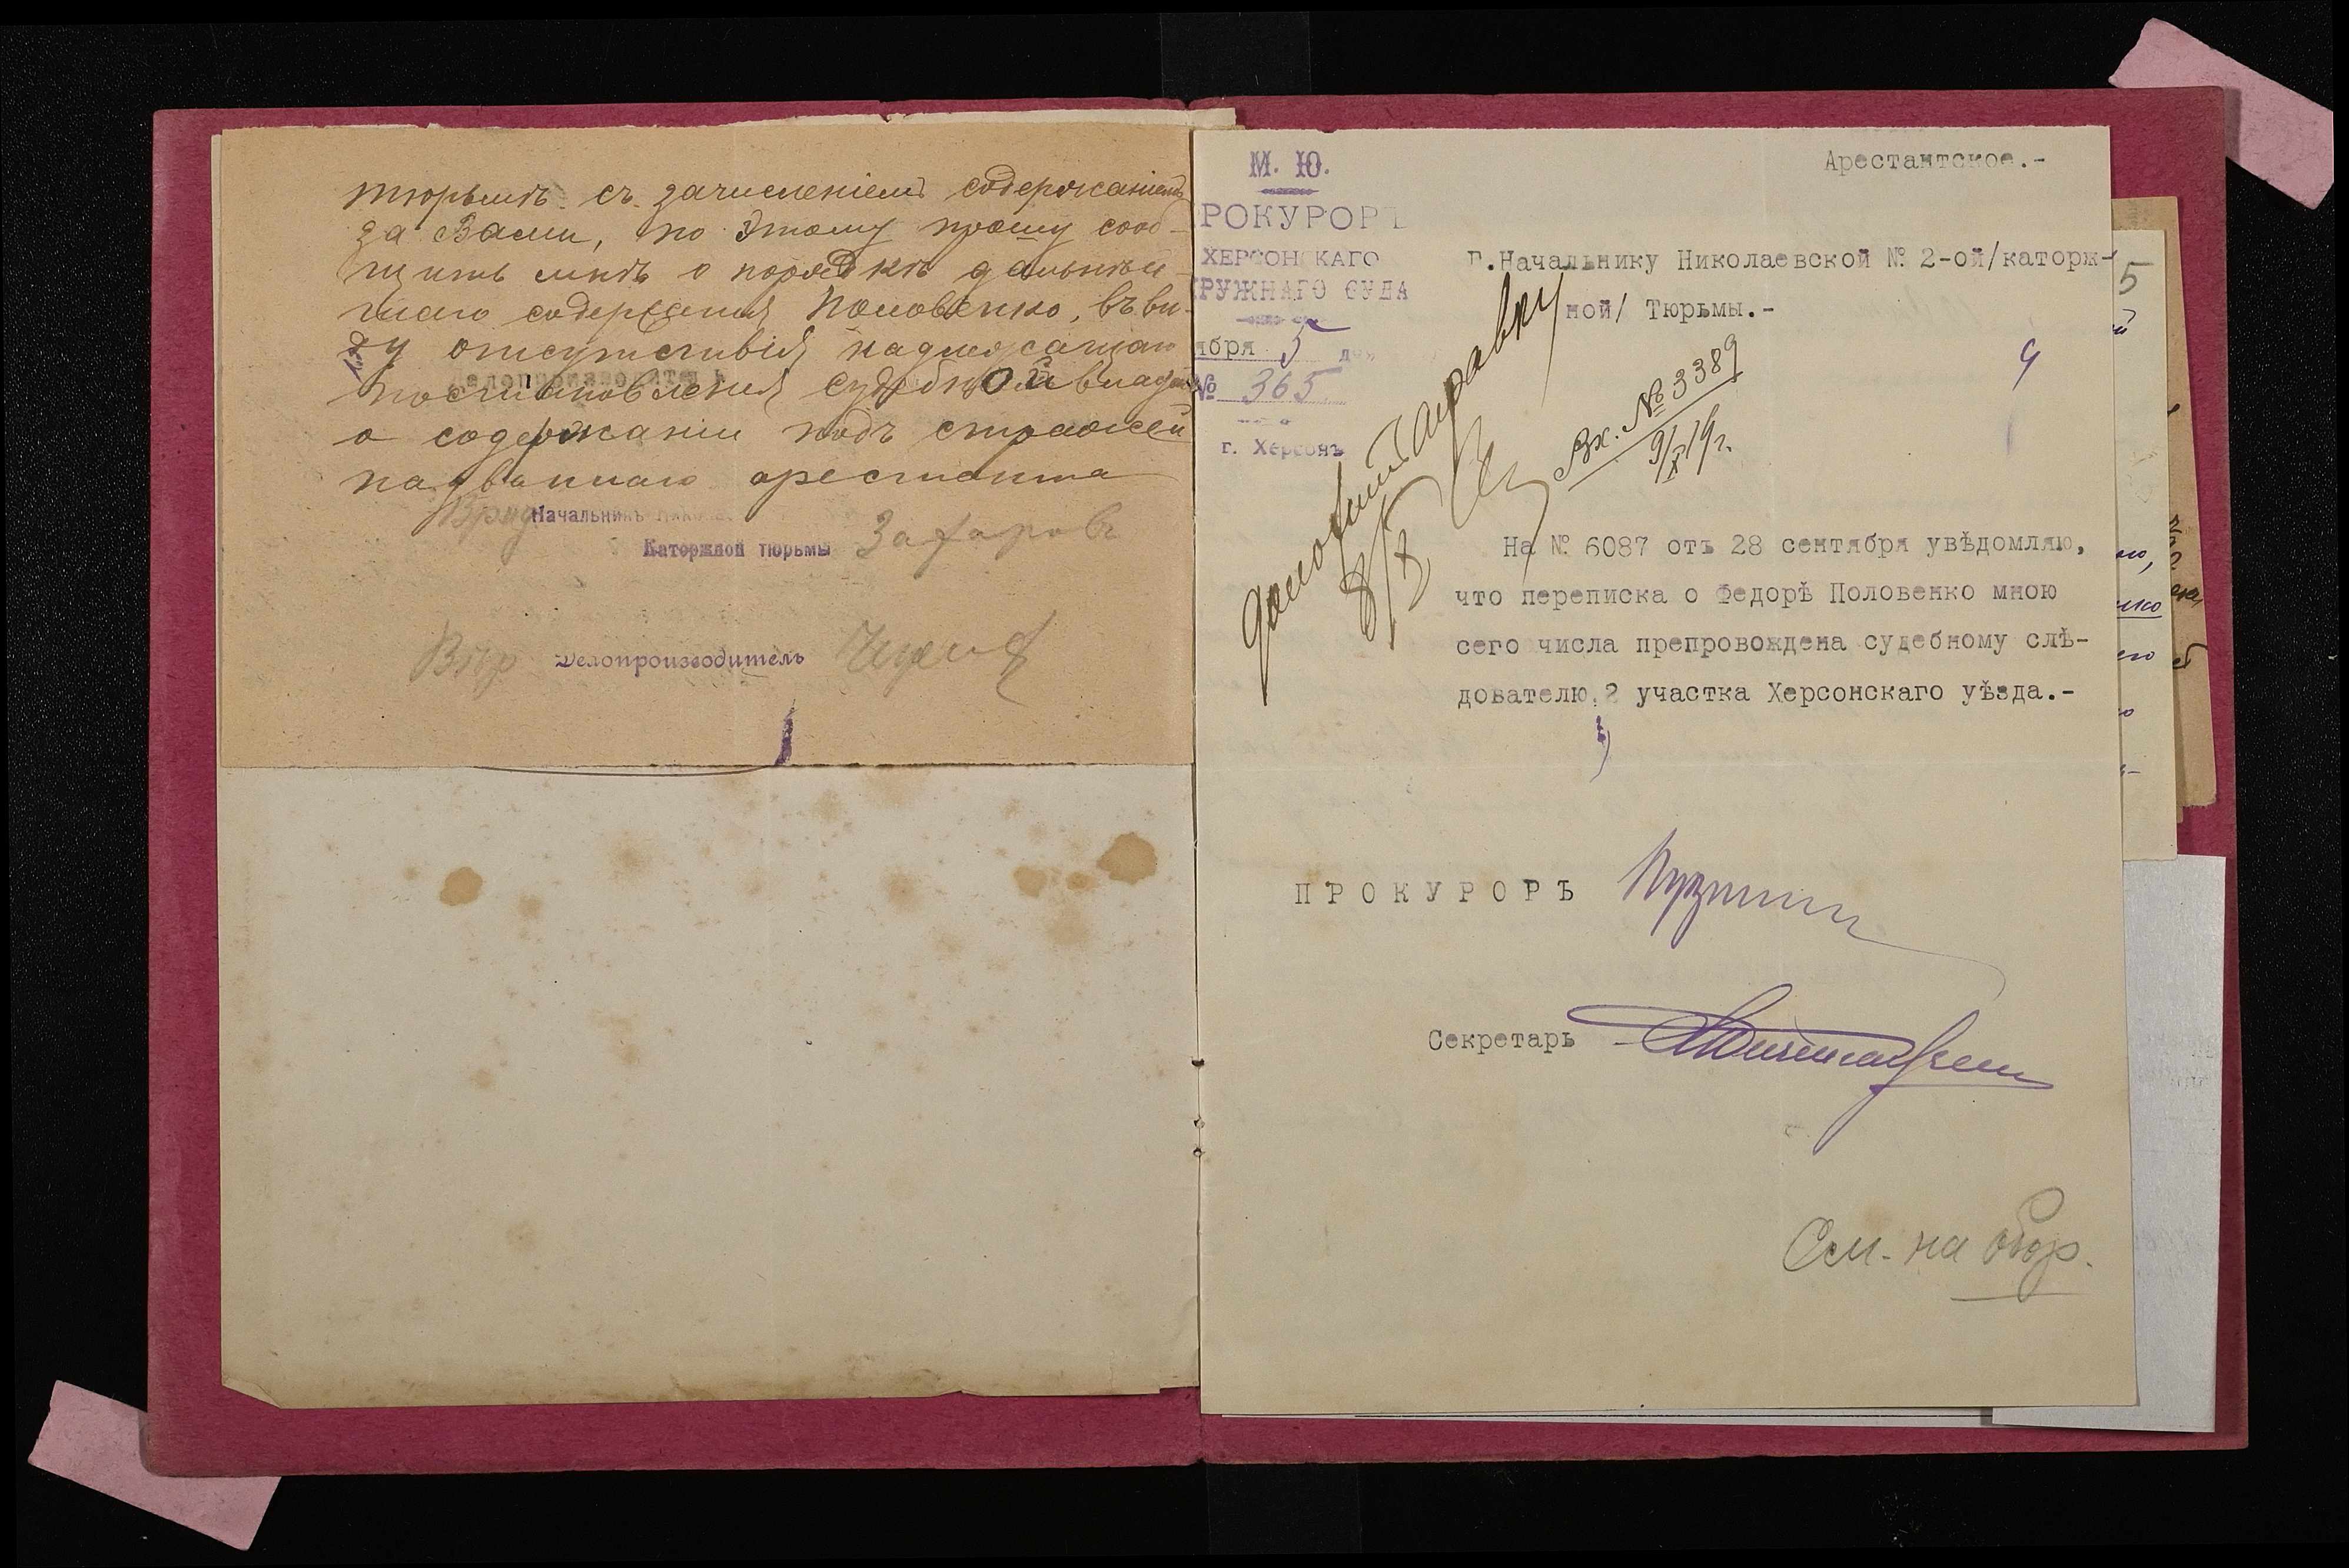 тюрьмѣ съ зачисленіемъ содержаніемъ
за Вами, по этому прошу сооб-
щить мнѣ о порядкѣ дальнѣй-
шаго содержания Половенко, въ ви-
ду отсутствія надлежащаго
постановления судебной власти
о содержаніи подъ стражей
названнаго арестанта
Врид Начальникъ Никола
Каторжной тюрьмы Захаровъ
Делопроизводитель
М. Ю.
РОКУРОРЪ
ХЕРСОНСКАГО
РУЖНАГО СУДА
ября 5 дня
№ 365
г. Херсонъ
Арестантское.-
Г.Начальнику Николаевской № 2-ой/каторж-
ной/ Тюрьмы.-
5
9
справку
8/X
Вх. № 3389
9/X 19 г.
На № 6087 отъ 28 сентября увѣдомляю,
что переписка о Федорѣ Половенко мною
сего числа препровождена судебному слѣ-
дователю 2 участка Херсонскаго уѣзда.-
ПРОКУРОРЪ
Секретарь
См. на обор.